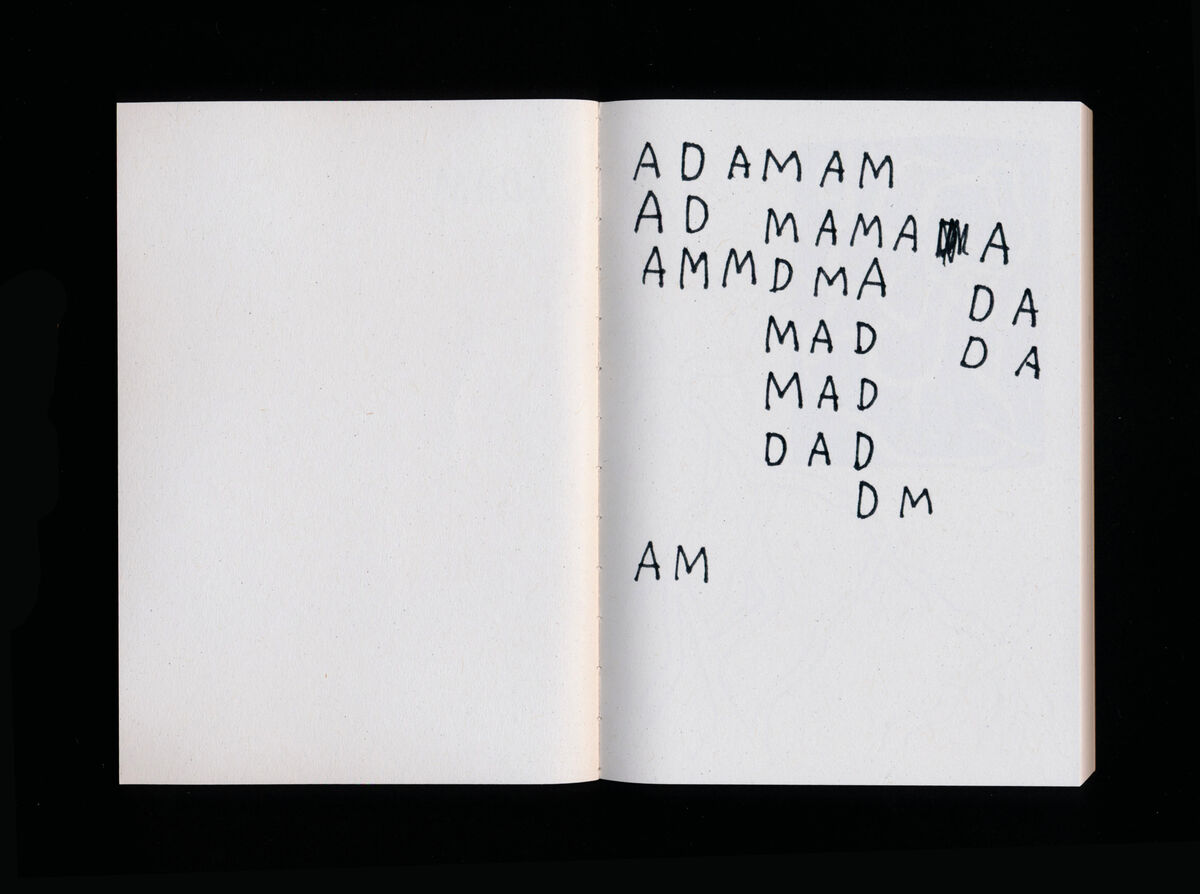 ADAMAM
AD MAMA A
AMMDMA
DA
MAD
DA
MAD
DAD
DM
AM